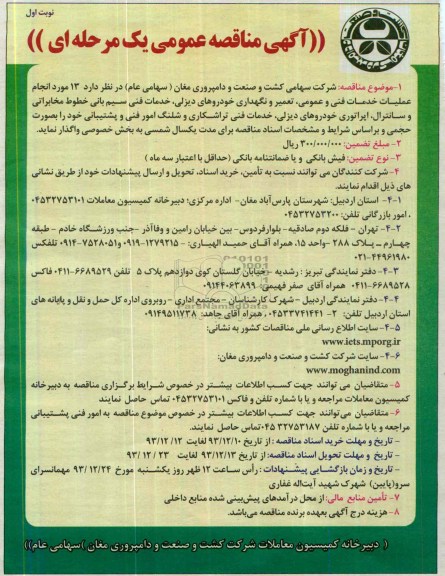 نوبت اول
((آگهی مناقصه عمومی یک مرحله ای ))
۱-موضوع مناقصه: شرکت سهامی کشت و صنعت و دامپروری مغان ( سهامی عام) در نظر دارد ۱۳ مورد انجام
عملیات خدمات فنی و عمومی، تعمیر و نگهداری خودروهای دیزلی، خدمات فنی سیم بانی خطوط مخابراتی
و سانترال، اپراتوری خودروهای دیزلی، خدمات فنی تراشکاری و شلنگ امور فنی و پشتیبانی خود را بصورت
حجمی و براساس شرایط و مشخصات اسناد مناقصه برای مدت یکسال شمسی به بخش خصوصی واگذار نماید.
۲- مبلغ تضمین: ۳۰۰/۰۰۰/۰۰۰ ریال
۳- نوع تضمین: فیش بانکی و یا ضمانتنامه بانکی (حداقل با اعتبار سه ماه )
۴- شرکت کنندگان می توانند نسبت به تأمین، خرید اسناد، تحویل و ارسال پیشنهادات خود از طریق نشانی
های ذیل اقدام نمایند.
۴-۱- استان اردبیل: شهرستان پارس‌آباد مغان- اداره مرکزی؛ دبیرخانه کمیسیون معاملات ۰۴۵۳۲۷۵۳۱۰۱
، امور بازرگانی تلفن: ۰۴۵۳۲۷۵۳۲۰۰
۴-۲- تهران - فلکه دوم صادقیه- بلوارفردوس- بین خیابان رامین و وفاآذر -جنب ورزشگاه خادم - طبقه
چهارم - پلاک ۲۸۸ -واحد ۱۵، همراه آقای حمید الهیاری: ۰۹۱۹-۱۲۷۹۲۱۵ و ۰۹۱۴-۷۵۲۸۰۵۱ تلفکس
۰۲۱-۴۴۹۶۱۹۸۰
۴-۳- دفتر نمایندگی تبریز : رشدیه -خیابان گلستان کوی دوازدهم پلاک ۵ تلفن ۶۶۸۹۵۲۹-۰۴۱۱ فاکس
۰۴۱۱-۶۶۸۹۵۲۸ همراه آقای صفر فهیمی ۰۹۱۴۴۰۶۳۸۹۹
۴-۴- دفتر نمایندگی اردبیل - شهرک کارشناسان - مجتمع اداری - روبروی اداره کل حمل و نقل و پایانه های
استان اردبیل تلفن: ۲- ۰۴۵۳۳۷۴۱۴۴۱ ، همراه آقای جاهد: ۰۹۱۴۹۵۱۱۷۳۸
۴-۵- سایت اطلاع رسانی ملی مناقصات کشور به نشانی:
www.iets.mporg.ir
۴-۶- سایت شرکت کشت و صنعت و دامپروری مغان:
www.moghanind.com
۵- متقاضیان می توانند جهت کسب اطلاعات بیشتر در خصوص شرایط برگزاری مناقصه به دبیرخانه
کمیسیون معاملات مراجعه و یا با شماره تلفن و فاکس ۰۴۵۳۲۷۵۳۱۰۱ تماس حاصل نمایند
۶- متقاضیان می توانند جهت کسب اطلاعات بیشتر در خصوص موضوع مناقصه به امور فنی پشتیبانی
مراجعه و یا با شماره تلفن ۰۴۵۳۲۷۵۳۱۸۷ تماس حاصل نمایند.
- تاریخ و مهلت خرید اسناد مناقصه : از تاریخ ۹۳/۱۲/۱۰ لغایت ۹۳/۱۲/ ۱۲
- تاریخ و مهلت تحویل اسناد مناقصه: از تاریخ ۹۳/۱۲/۱۳ لغایت ۲۳ / ۱۲ / ۹۳
- تاریخ و زمان بازگشایی پیشنهادات : رأس ساعت ۱۲ ظهر روز یکشنبه مورخ ۹۳/۱۲/۲۴ مهمانسرای
سرو(پایین) شهرک شهید آیت‌اله غفاری
۷- تأمین منابع مالی: از محل درآمدهای پیش‌بینی شده منابع داخلی
۸- هزینه درج آگهی بعهده برنده مناقصه می‌باشد.
( دبیرخانه کمیسیون معاملات شرکت کشت و صنعت و دامپروری مغان )سهامی عام))